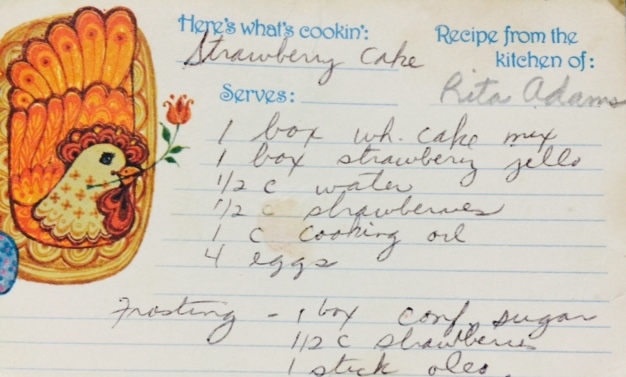 Here's what's cookin':
Strawberry Cake
Recipe from the kitchen of:
Rita Adams
Serves:
1 box wh. cake mix
1 box strawberry jello
1/2 c water
1/2 c strawberries
1 c cooking oil
4 eggs
Frosting - 1 box conf. sugar
1/2 c strawberries
1 stick oleo.